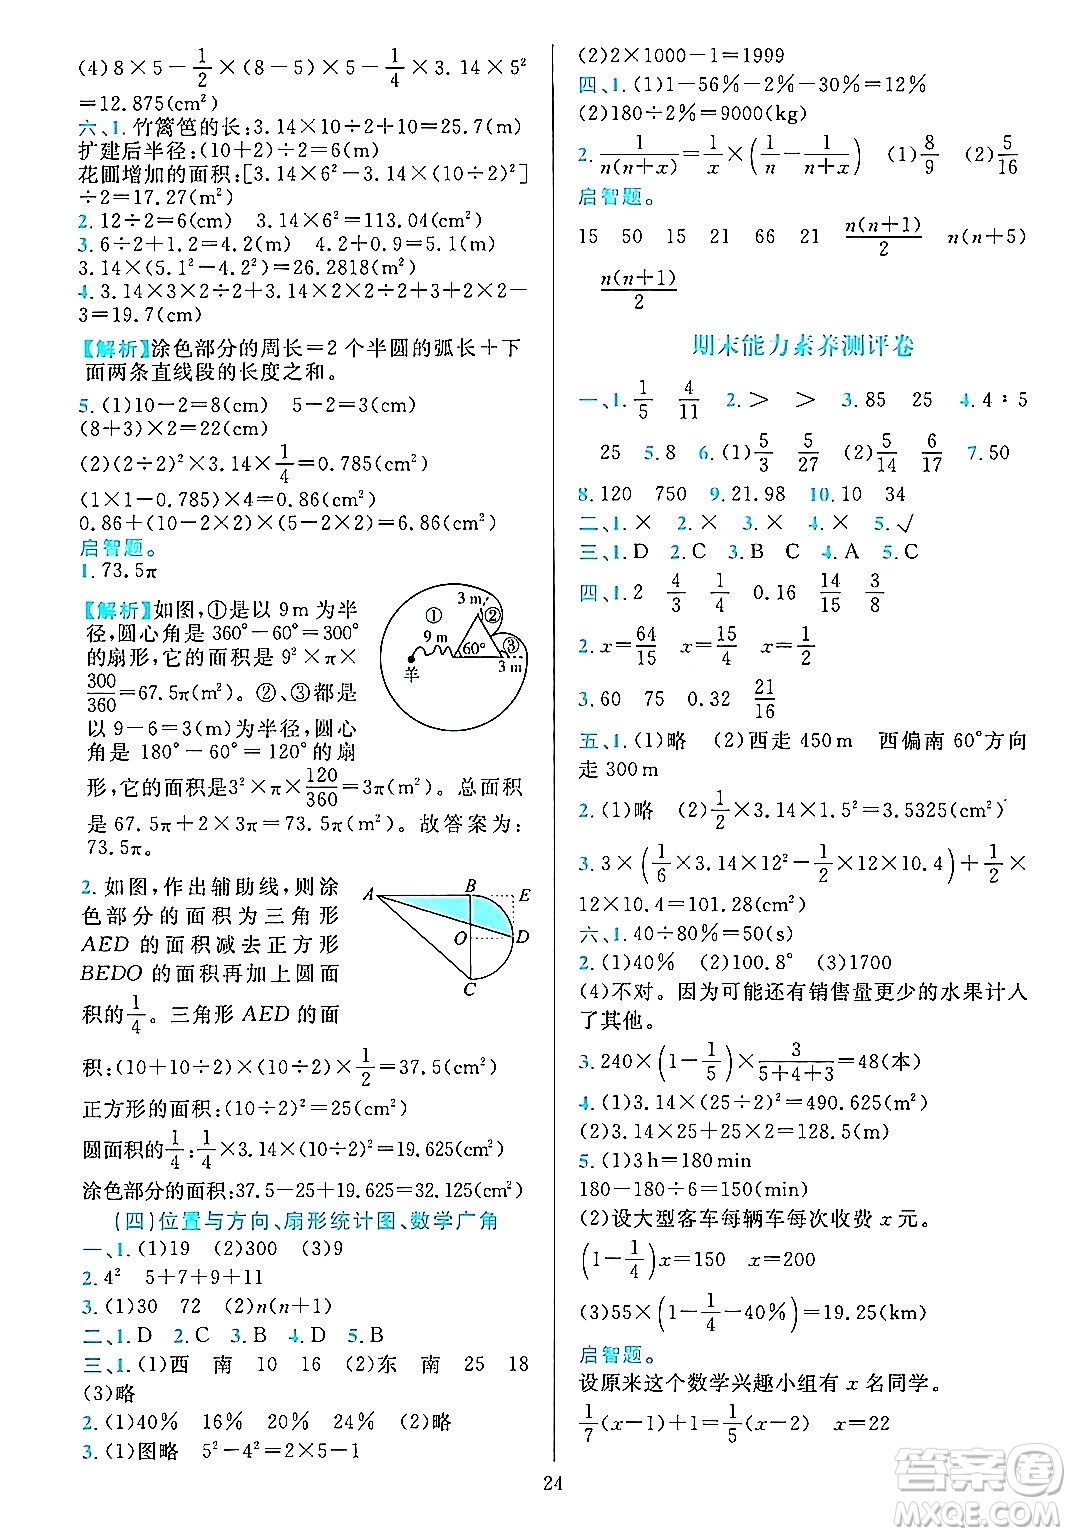 (4)8×5−1/2×(8−5)×5−1/4×3.14×5²
=12.875(cm²)
六、1.竹篱笆的长:3.14×10÷2+10=25.7(m)
扩建后半径:(10+2)÷2=6(m)
花圃增加的面积:[3.14×6²−3.14×(10÷2)²]
÷2=17.27(m²)
2.12÷2=6(cm) 3.14×6²=113.04(cm²)
3.6÷2+1.2=4.2(m) (6+4.2)÷2=5.1(m)
3.14×(5.1²−4.2²)=26.2818(m²)
4.3.14×3×2÷2+3.14×2÷2+3+2×2−
3=19.7(cm)
【解析】涂色部分的周长=2个半圆的弧长+下
面两条直线段的长度之和。
5.(1)10−2=8(cm) 5−2=3(cm)
(8+3)×2=22(cm)
(2)(2÷2)²×3.14×1/4=0.785(cm²)
(1×1−0.785)×4=0.86(cm²)
0.86+(10−2×2)×(5−2×2)=6.86(cm²)
启智题。
1.73.5π
【解析】如图,①是以9m为半
径,圆心角是360°−60°=300°
的扇形,它的面积是9²×π×
300/360=67.5π(m²)。②、③都是
以9−6=3(m)为半径,圆心
角是180°−60°=120°的扇
形,它的面积是3²×π×120/360=3π(m²)。总面积
是67.5π+2×3π=73.5π(m²)。故答案为:
73.5π。
① 3m ② 9m 60° ③ 羊 3m
2.如图,作出辅助线,则涂
色部分的面积为三角形
AED的面积减去正方形
BEDO的面积再加上圆面
积的1/4。三角形AED的面
A B E O D C
积:(10+10÷2)×(10÷2)×1/2=37.5(cm²)
正方形的面积:(10÷2)²=25(cm²)
圆面积的1/4:1/4×3.14×(10÷2)²=19.625(cm²)
涂色部分的面积:37.5−25+19.625=32.125(cm²)
(四)位置与方向、扇形统计图、数学广角
一、1.(1)19 (2)300 (3)9
2.4² 5+7+9+11
3.(1)30 72 (2)n(n+1)
二、1.D 2.C 3.B 4.D 5.B
三、1.(1)西 南 10 16 (2)东 南 25 18
(3)略
2.(1)40% 16% 20% 24% (2)略
3.(1)图略 5²−4²=2×5−1
(2)2×1000−1=1999
四、1.(1)1−56%−2%−30%=12%
(2)180÷2%=9000(kg)
2.1/n(n+x)=1/x×(1/n−1/n+x) (1)8/9 (2)5/16
启智题。
15 50 15 21 66 21 n(n+1)/2 n(n+5)
n(n+1)/2
期末能力素养测评卷
一、1.1/5 4/11 2.> > 3.85 25 4.4∶5
25 5.8 6.(1)5/3 5/27 (2)5/14 6/17 7.50
8.120 750 9.21.98 10.10 34
二、1.× 2.× 3.× 4.× 5.√
三、1.D 2.C 3.B C 4.A 5.C
四、1.2 3/4 4/3 0.16 14/15 3/8
2.x=64/15 x=15/4 x=1/2
3.60 75 0.32 21/16
五、1.(1)略 (2)西走450m 西偏南60°方向
走300m
2.(1)略 (2)1/2×3.14×1.5²=3.5325(cm²)
3.3×(1/6×3.14×12²−1/2×12×10.4)+1/2×
12×10.4=101.28(cm²)
六、1.40÷80%=50(s)
2.(1)40% (2)100.8° (3)1700
(4)不对。因为可能还有销售量更少的水果计入
了其他。
3.240×(1−1/5)×3/5+4+3=48(本)
4.(1)3.14×(25÷2)²=490.625(m²)
(2)3.14×25+25×2=128.5(m)
5.(1)3h=180min
180−180÷6×5=30(min)
(2)设大型客车每辆车每次收费x元。
(1−1/4)x=150 x=200
(3)55×(1−1/4−40%)=19.25(km)
启智题。
设原来这个数学兴趣小组有x名同学。
1/7(x−1)+1=1/5(x−2) x=22
24
答案圈
MXQE.COM